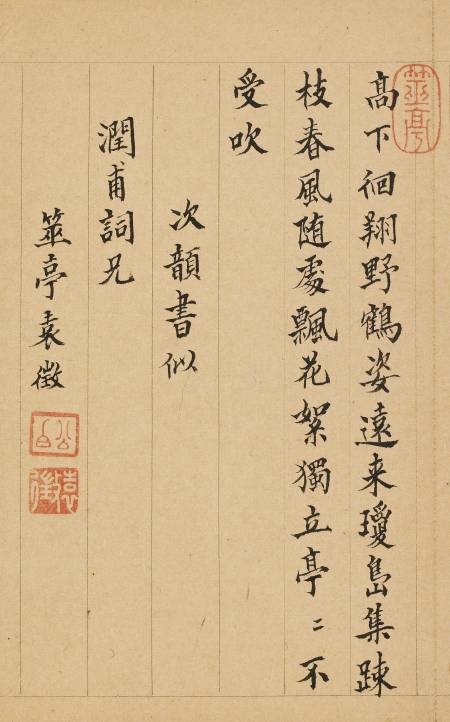 筮亭
高下徊翔野鶴姿遠来瓊島集踈
枝春風随處飄花絮獨立亭〻不
受吹
次韻書似
潤甫詞兄
筮亭袁徵
袁徵